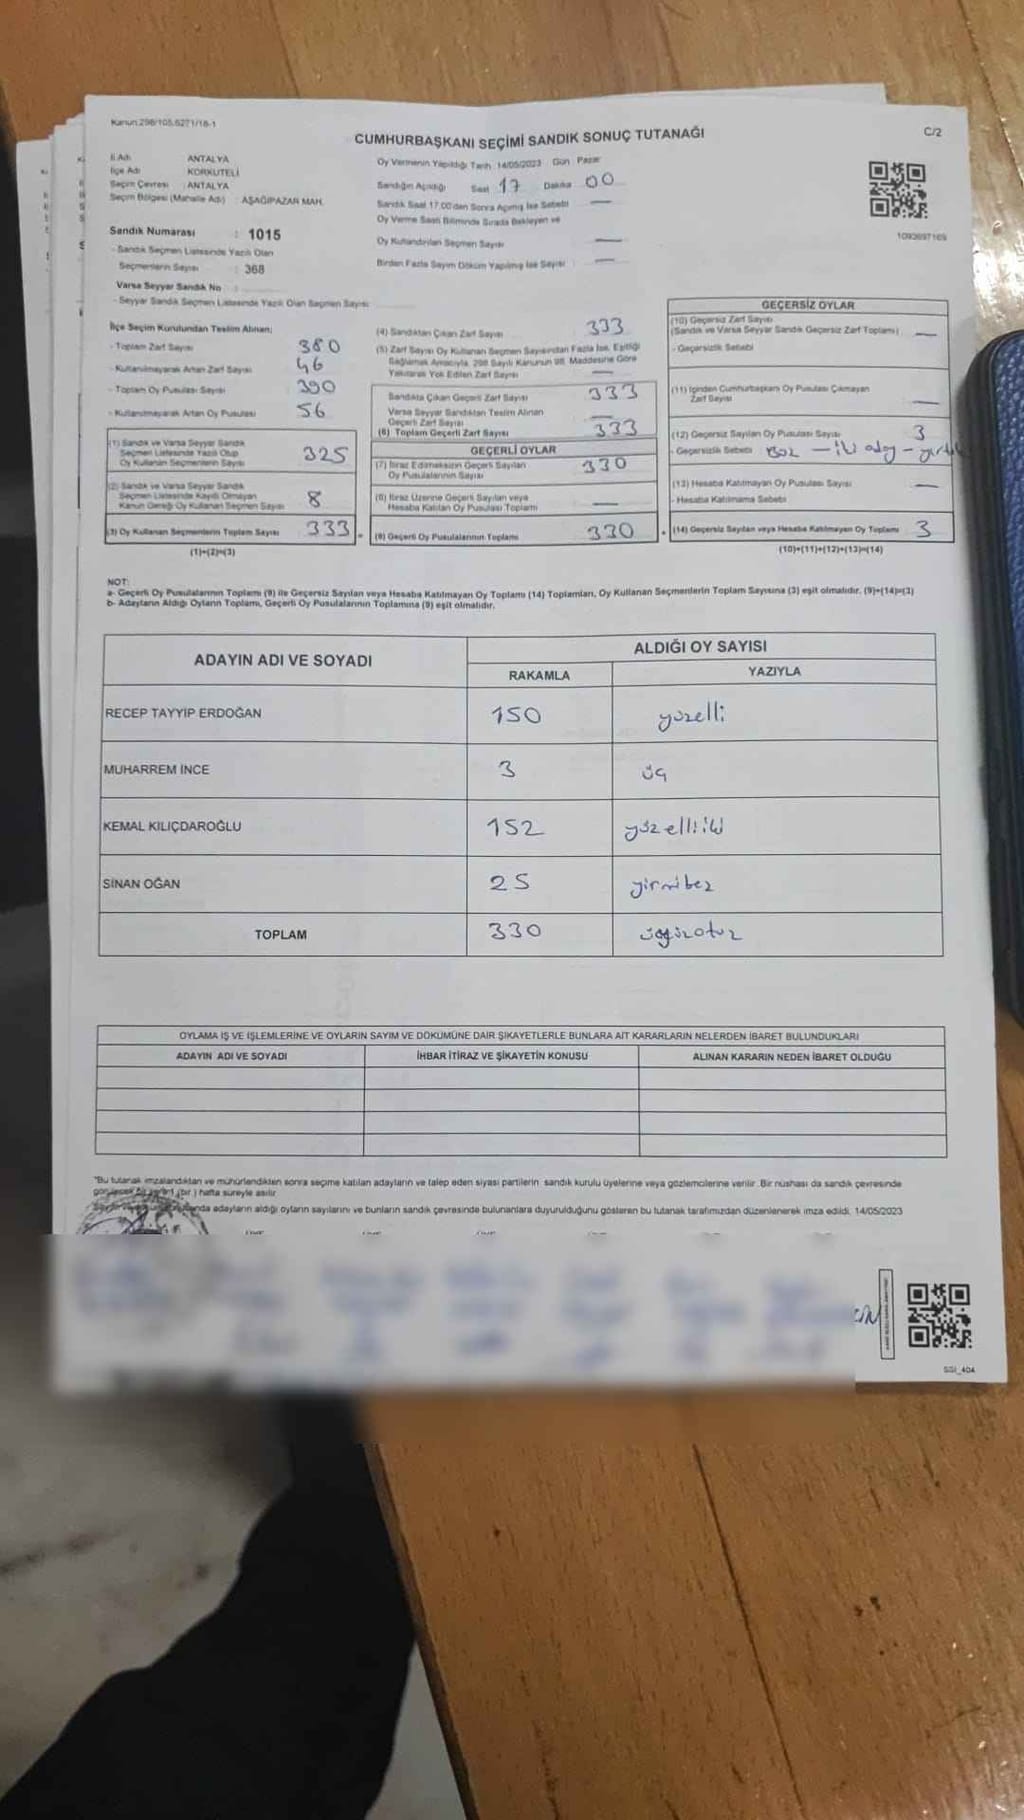 Kanun:298/105,6271/18-1
C/2
CUMHURBAŞKANI SEÇİMİ SANDIK SONUÇ TUTANAĞI
İl Adı ANTALYA
İlçe Adı KORKUTELİ
Seçim Çevresi : ANTALYA
Seçim Bölgesi (Mahalle Adı) : AŞAĞIPAZAR MAH.
Sandık Numarası : 1015
- Sandık Seçmen Listesinde Yazılı Olan
Seçmenlerin Sayısı : 368
Varsa Seyyar Sandık No :
- Seyyar Sandık Seçmen Listesinde Yazılı Olan Seçmen Sayısı:
Oy Vermenin Yapıldığı Tarih : 14/05/2023 Gün : Pazar
Sandığın Açıldığı Saat 17 Dakika 00
Sandık Saat 17.00'den Sonra Açılmış İse Sebebi —
Oy Verme Saati Bitiminde Sırada Bekleyen ve
Oy Kullandırılan Seçmen Sayısı —
Birden Fazla Sayım Döküm Yapılmış İse Sayısı : —
1093697169
İlçe Seçim Kurulundan Teslim Alınan;
- Toplam Zarf Sayısı 380
- Kullanılmayarak Artan Zarf Sayısı 46
- Toplam Oy Pusulası Sayısı 390
- Kullanılmayarak Artan Oy Pusulası 56
(1) Sandık ve Varsa Seyyar Sandık
Seçmen Listesinde Yazılı Olup
Oy Kullanan Seçmenlerin Sayısı 325
(2) Sandık ve Varsa Seyyar Sandık
Seçmen Listesinde Kayıtlı Olmayan
Kanun Gereği Oy Kullanan Seçmen Sayısı 8
(3) Oy Kullanan Seçmenlerin Toplam Sayısı 333
(1)+(2)=(3)
(4) Sandıktan Çıkan Zarf Sayısı 333
(5) Zarf Sayısı Oy Kullanan Seçmen Sayısından Fazla İse, Eşitliği
Sağlamak Amacıyla, 298 Sayılı Kanunun 98. Maddesine Göre
Yakılarak Yok Edilen Zarf Sayısı —
Sandıkta Çıkan Geçerli Zarf Sayısı 333
Varsa Seyyar Sandıktan Teslim Alınan
Geçerli Zarf Sayısı —
(6) Toplam Geçerli Zarf Sayısı 333
GEÇERLİ OYLAR
(7) İtiraz Edilmeksizin Geçerli Sayılan
Oy Pusulalarının Sayısı 330
(8) İtiraz Üzerine Geçerli Sayılan veya
Hesaba Katılan Oy Pusulası Toplamı —
(9) Geçerli Oy Pusulalarının Toplamı 330
GEÇERSİZ OYLAR
(10) Geçersiz Zarf Sayısı
(Sandık ve Varsa Seyyar Sandık Geçersiz Zarf Toplamı) —
- Geçersizlik Sebebi
(11) İçinden Cumhurbaşkanı Oy Pusulası Çıkmayan
Zarf Sayısı —
(12) Geçersiz Sayılan Oy Pusulası Sayısı 3
- Geçersizlik Sebebi Boz — iki aday -
(13) Hesaba Katılmayan Oy Pusulası Sayısı —
- Hesaba Katılmama Sebebi
(14) Geçersiz Sayılan veya Hesaba Katılmayan Oy Toplamı 3
(10)+(11)+(12)+(13)=(14)
NOT:
a- Geçerli Oy Pusulalarının Toplamı (9) ile Geçersiz Sayılan veya Hesaba Katılmayan Oy Toplamı (14) Toplamları, Oy Kullanan Seçmenlerin Toplam Sayısına (3) eşit olmalıdır. (9)+(14)=(3)
b- Adayların Aldığı Oyların Toplamı, Geçerli Oy Pusulalarının Toplamına (9) eşit olmalıdır.
ADAYIN ADI VE SOYADI ALDIĞI OY SAYISI
RAKAMLA YAZIYLA
RECEP TAYYİP ERDOĞAN 150 yüzelli
MUHARREM İNCE 3 üç
KEMAL KILIÇDAROĞLU 152 yüzelliiki
SİNAN OĞAN 25 yirmibeş
TOPLAM 330 üçyüzotuz
OYLAMA İŞ VE İŞLEMLERİNE VE OYLARIN SAYIM VE DÖKÜMÜNE DAİR ŞİKAYETLERLE BUNLARA AİT KARARLARIN NELERDEN İBARET BULUNDUKLARI
ADAYIN ADI VE SOYADI İHBAR İTİRAZ VE ŞİKAYETİN KONUSU ALINAN KARARIN NEDEN İBARET OLDUĞU
"Bu tutanak imzalandıktan ve mühürlendikten sonra seçime katılan adayların ve talep eden siyasi partilerin sandık kurulu üyelerine veya gözlemcilerine verilir. Bir nüshası da sandık çevresinde
(bir) hafta süreyle asılır.
adayların aldığı oyların sayılarını ve bunların sandık çevresinde bulunanlara duyurulduğunu gösteren bu tutanak tarafımızdan düzenlenerek imza edildi. 14/05/2023
SGI_404